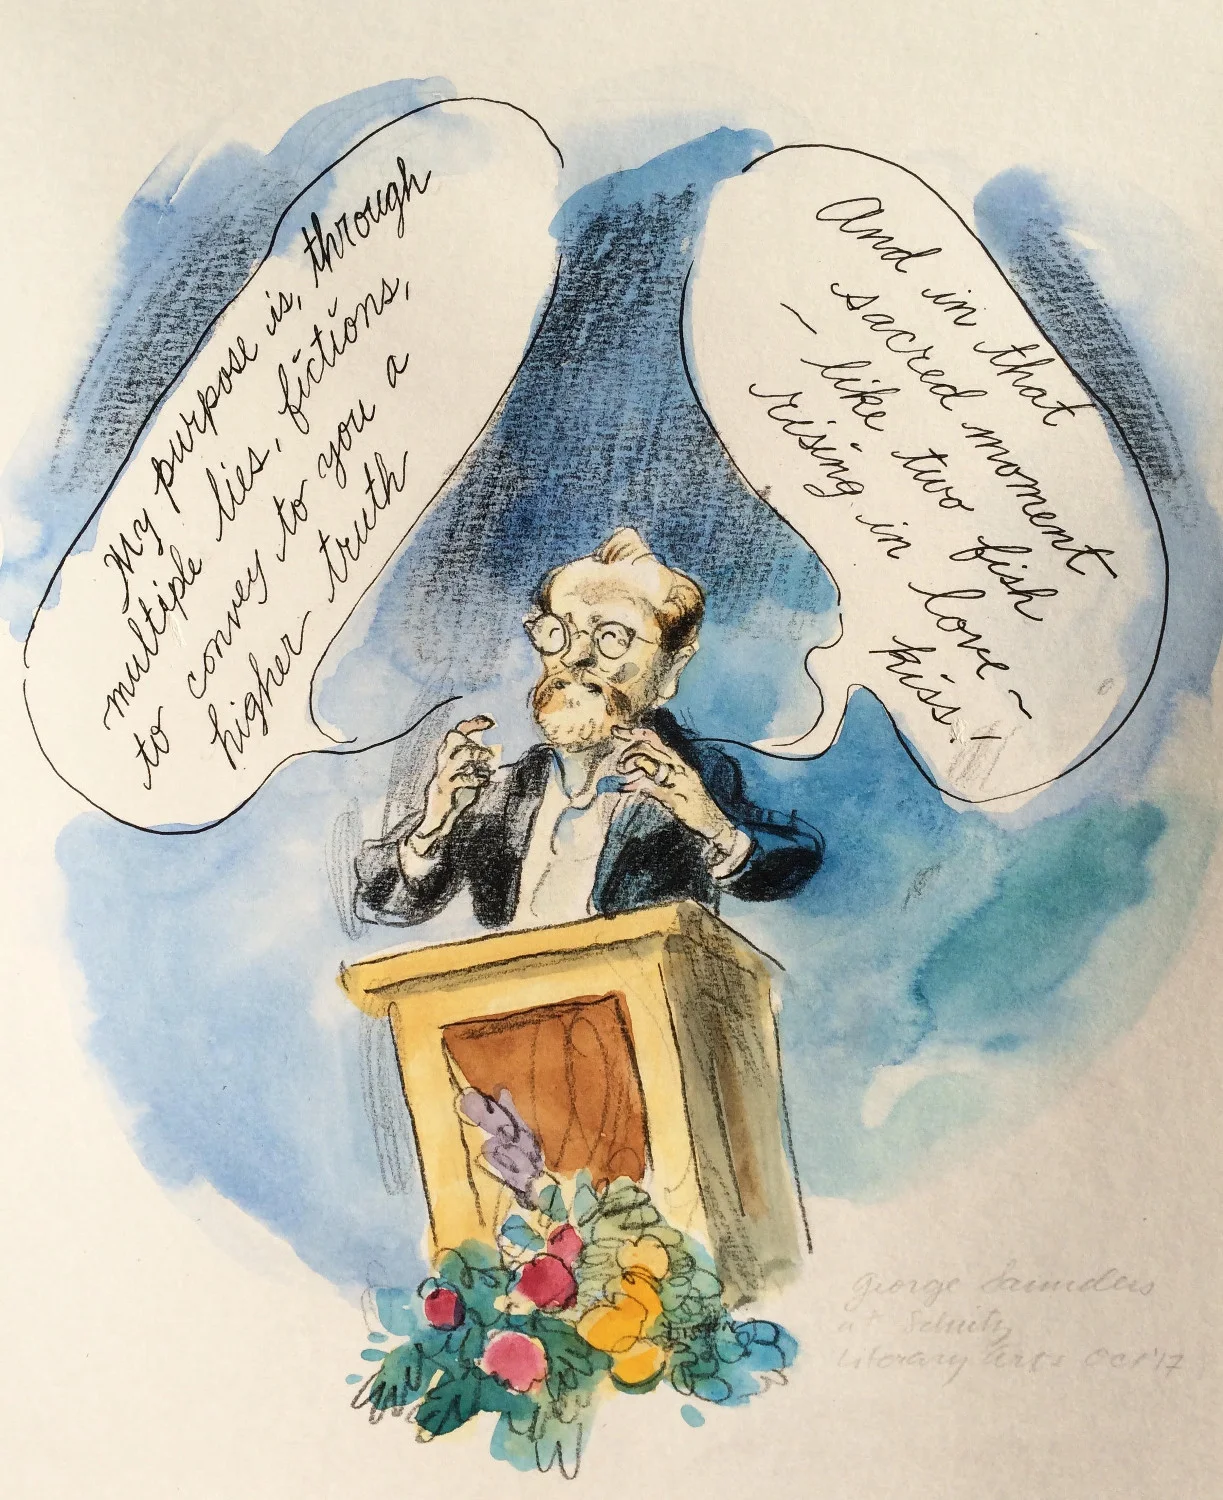 My purpose is, through
multiple lies, fictions,
to convey to you a
higher truth
And in that
sacred moment
– like two fish
rising in love –
kiss!
George Saunders
at Schnitz
Literary Arts Oct '17